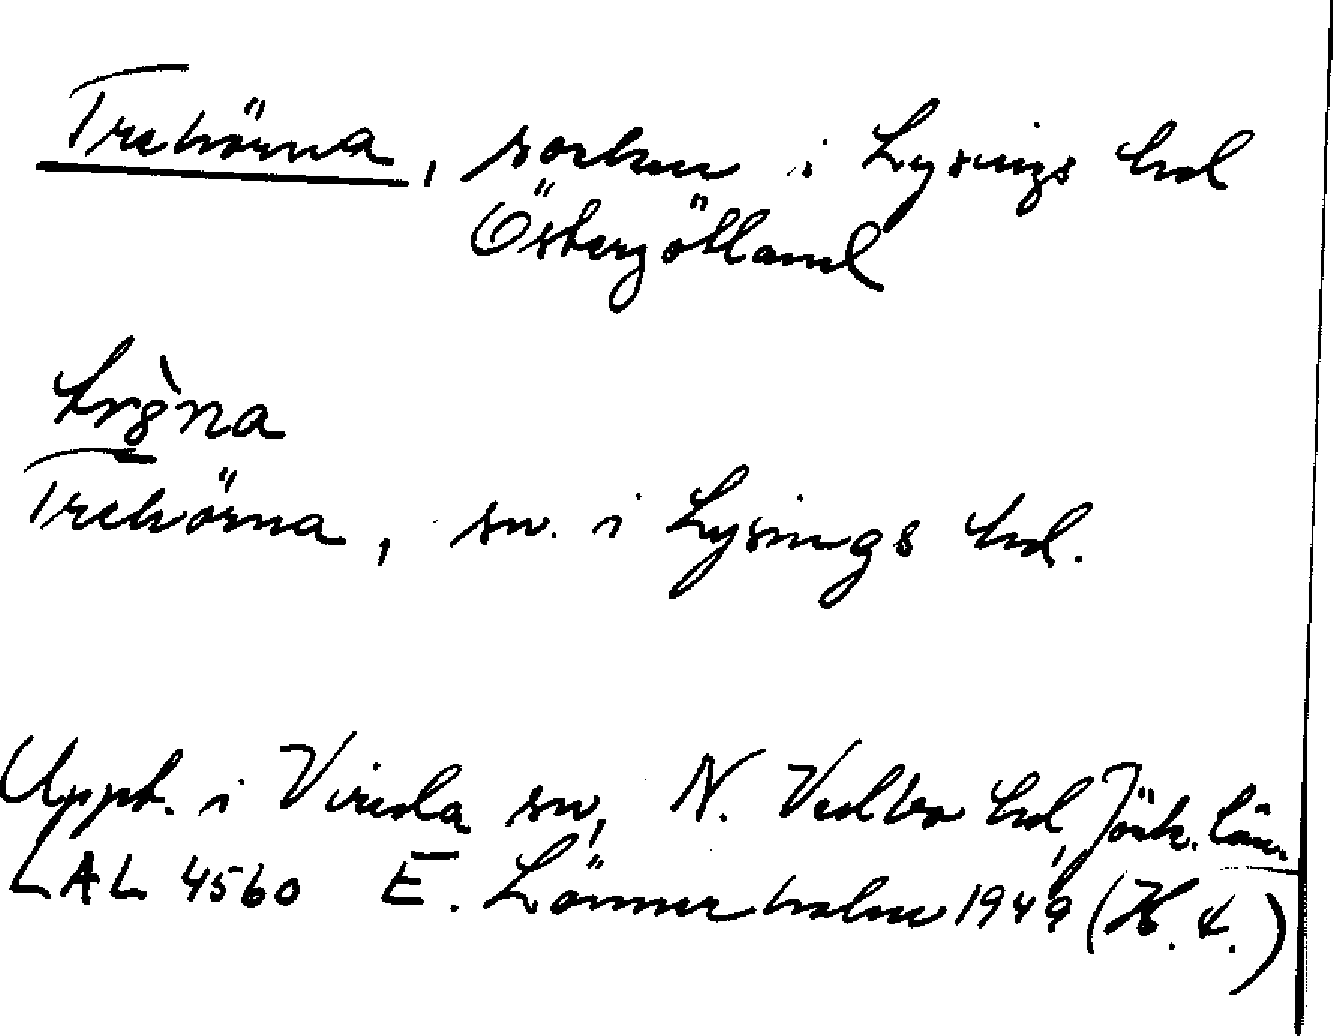 Trehörna, socken i Lysings hd
Östergötland
trö̀na
Trehörna, sn. i Lysings hd.
Uppt. i Vireda sn, N. Vedbo hd, Jönk. län.
LAL 4560 E. Lönnerholm 1949 (H. 4.)